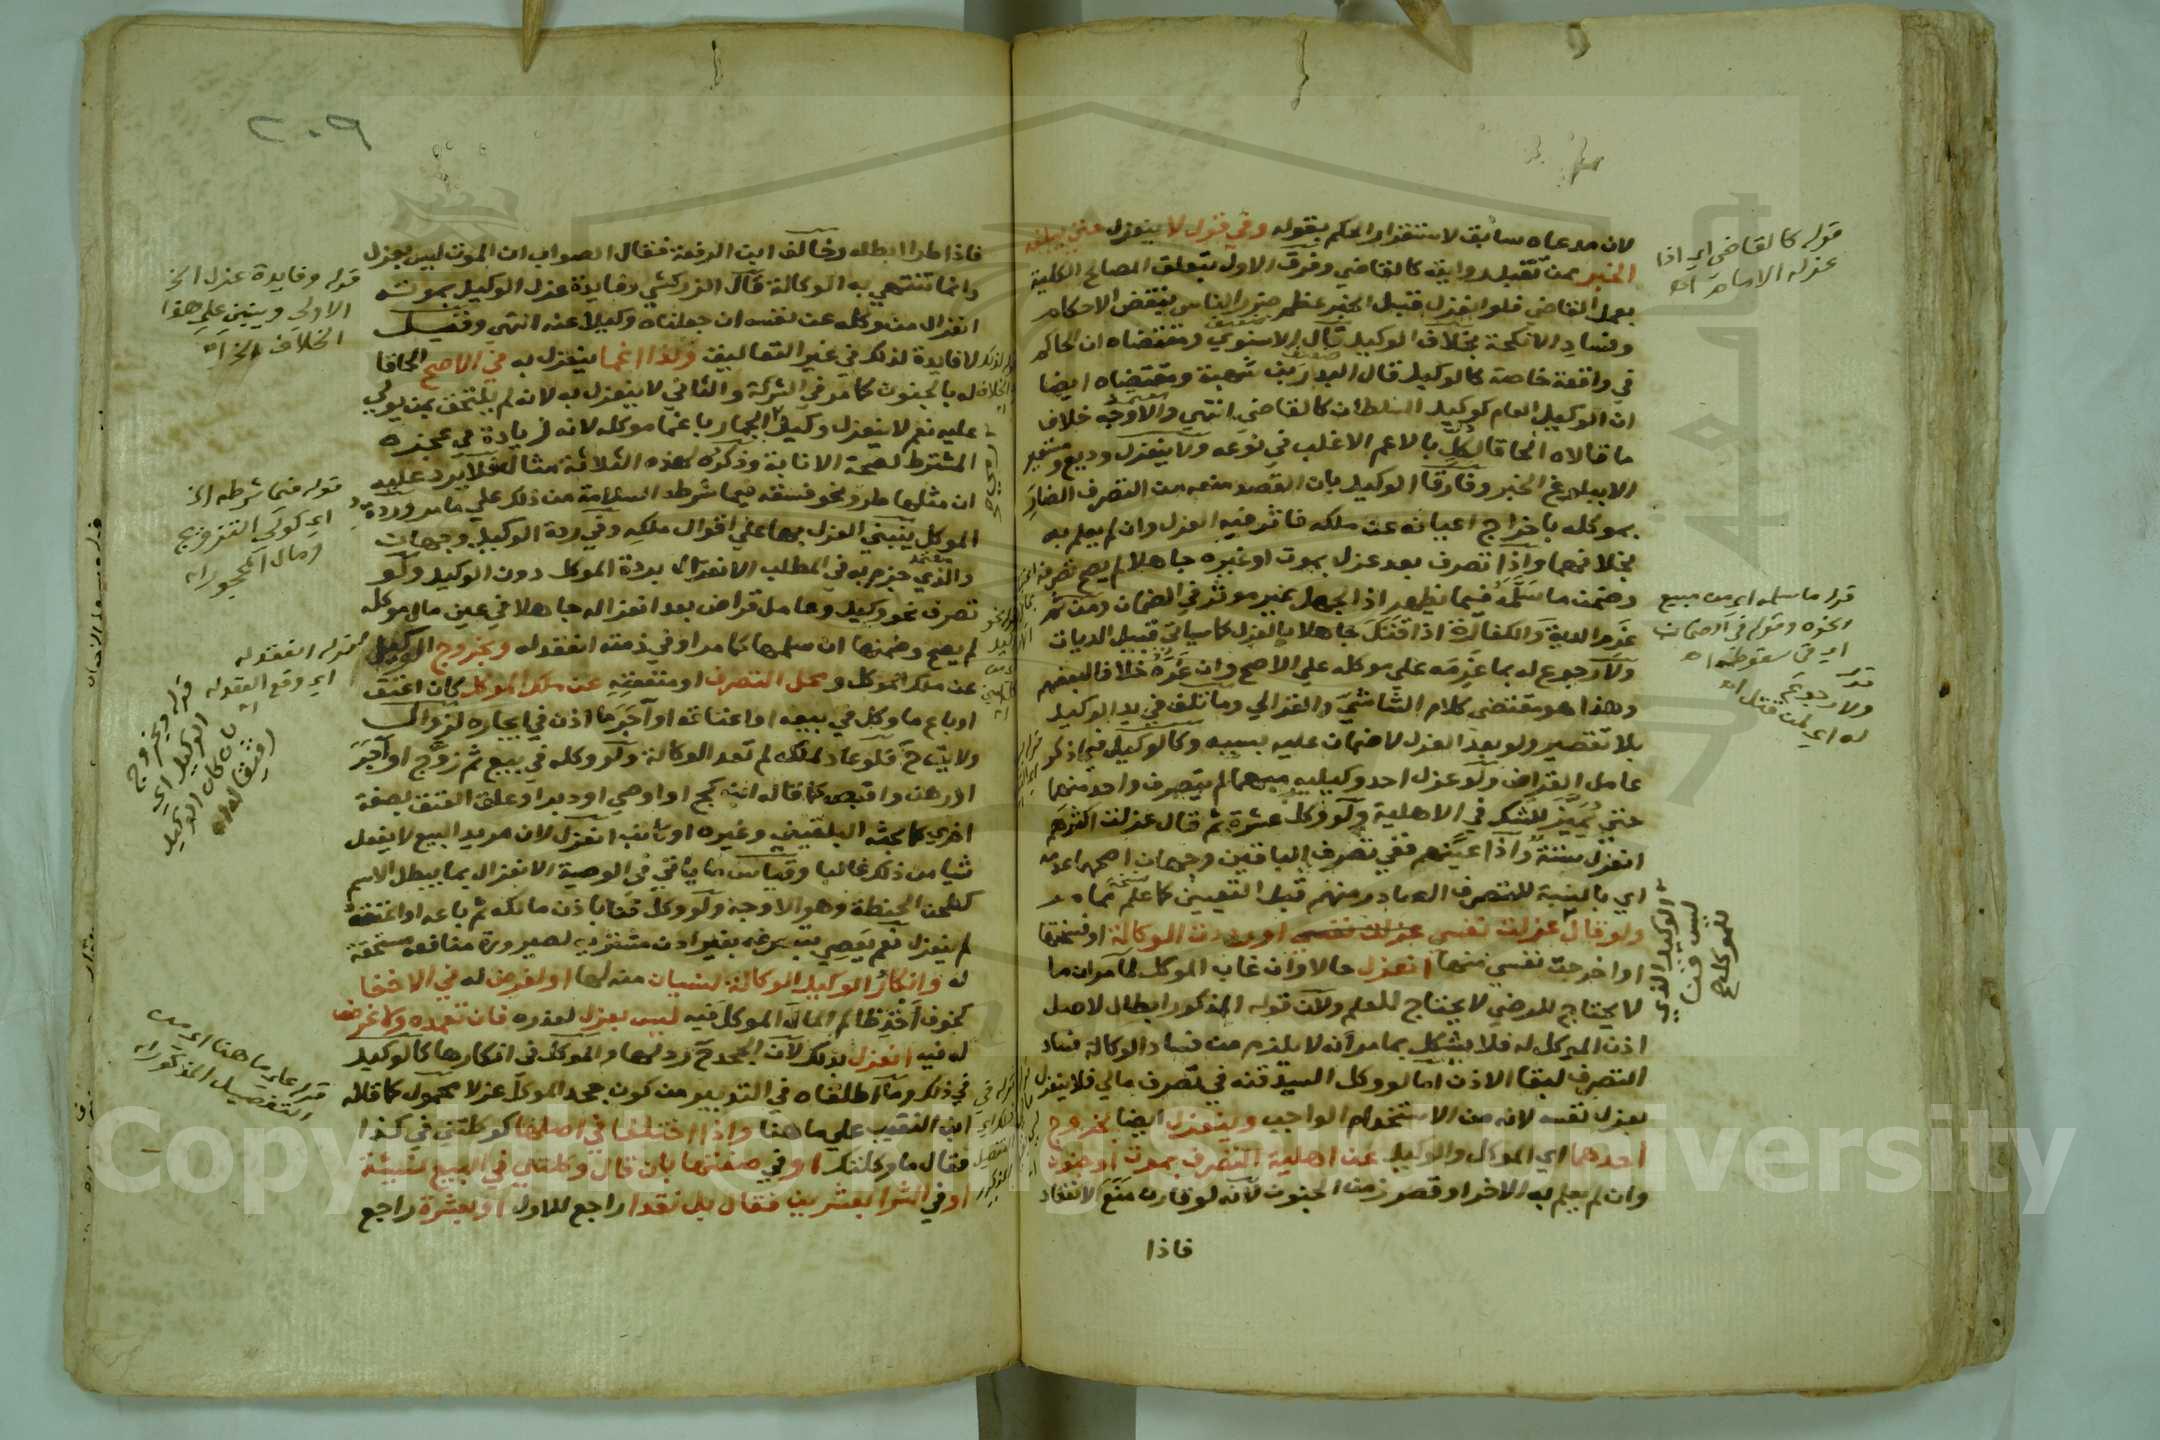 لان مدعاه سابق لاستقرار الحكم بقوله وفي قول لا ينعزل حتى يبلغه
الخبر ممن تقبل روايته كالقاضي وفرق الاول بتعلق المصالح الكلية
بعمل القاضي فلو انعزل قبل الخبر عظم ضرر الناس بنقض الاحكام
وفساد الانكحة بخلاف الوكيل قال الاسنوي ومقتضاه ان الحاكم
في واقعة خاصة كالوكيل قال البدر بن شهبة ومقتضاه ايضا
ان الوكيل العام كوكيل السلطان كالقاضي انتهى والاوجه خلاف
ما قالاه الحاقا لكل بالاعم الاغلب في نوعه ولا ينعزل وديع ومستعير
الا ببلوغ الخبر وفارقا الوكيل بان القصد منعه من التصرف الضار
بموكله باخراج اعيانه عن ملكه فاثر فيه العزل وان لم يعلم به
بخلافهما واذا تصرف بعد عزل بموت او غيره جاهلا لم يصح تصرفه
وضمن ما سلمه فيما يظهر اذ الجهل غير موثر في الضمان ومن ثم
غرم الدية والكفارة اذا قتل جاهلا بالعزل كما سياتي قبيل الديات
ولا رجوع له بما غرمه على موكله على الاصح وان غره خلافا لبعضهم
وهذا هو مقتضى كلام الشاشي والغزالي وما تلف في يد الوكيل
بلا تقصير ولو بعد العزل لا ضمان عليه بسببه وكالوكيل فيما ذكر
عامل القراض ولو عزل احد وكيليه مبهما لم يتصرف واحد منهما
حتى يميز للشك في الاهلية ولو وكل عشرة ثم قال عزلت اكثرهم
انعزل ستة واذا عينهم ففي تصرف الباقين وجهان اصحهما عدمه
اي بالنسبة للتصرف الصادر منهم قبل التعيين كما علم مما مر
ولو قال عزلت نفسي او رددت الوكالة او فسختها
او اخرجت نفسي منها انعزل حالا وان غاب الموكل لما مر ان ما
لا يحتاج للرضى لا يحتاج للعلم ولان قوله المذكور ابطال لاصل
اذن الموكل له فلا يشكل بما مر انه لا يلزم من فساد الوكالة فساد
التصرف لبقا الاذن اما لو وكل السيد قنه في تصرف مالي فلا ينعزل
بعزل نفسه لانه من الاستخدام الواجب وينعزل ايضا بخروج
احدهما اي الموكل والوكيل عن اهلية التصرف بموت او جنون
وان لم يعلم به الاخر او قصر زمن الجنون لانه لو قارن منع الانعقاد
فاذا
قوله كالقاضي اي اذا
عزله الامام اه
قوله ما سلمه اي من مبيع
ولا رجوع
له اي لمن قتل اه
الوكيل الذي
ليس قنا
للموكل صح
٢٠٩
فاذا طرا ابطله وخالف ابن الرفعة فقال الصواب ان الموت ليس بعزل
وانما تنتهي به الوكالة قال الزركشي وفايدة عزل الوكيل بموته
انعزال من وكله عن نفسه ان جعلناه وكيلا عنه انتهى وقيل
لا فايدة لذلك في غير التعاليق وكذا اغما ينعزل به في الاصح الحاقا
له بالجنون كما مر في الشركة والثاني لا ينعزل به لانه لم يلتحق بمن يولى
عليه نعم لا ينعزل وكيل الجمار باغما موكله لانه زيادة في عجزه
المشترط لصحة الانابة وذكره لهذه الثلاثة مثال فلا يرد عليه
ان مثلها طرو نحو فسقه فيما شرطه السلامة من ذلك على ما مر وردة
الموكل ينبني العزل بها على اقوال ملكه وفي ردة الوكيل وجهان
والذي جزم به في المطلب الانعزال بردة الموكل دون الوكيل ولو
تصرف نحو وكيل وعامل قراض بعد انعزاله جاهلا في عين مال موكله
لم يصح وضمنها ان سلمها كما مر او في ذمته انعقد له وبخروج الوكيل
عن ملك الموكل و محل التصرف او منفعته عن ملك الموكل كان اعتق
او باع ما وكل في بيعه او اعتاقه او اجر ما اذن في ايجاره لزوال
ولايته ح فلو عاد لملكه لم تعد الوكالة ولو وكله في بيع ثم زوج او اجر
او رهن واقبض كما قاله ابن كج او اوصى او دبر او علق العتق بصفة
اخرى كما بحثه البلقيني وغيره او كاتب انعزل لان مريد البيع لا يفعل
شيا من ذلك غالبا وقياس ما ياتي في الوصية الانعزال بما يبطل الاسم
كطحن الحنطة وهو الاوجه ولو وكل قنا باذن مالكه ثم باعه او اعتقه
لم ينعزل نعم يعصي بتصرفه بغير اذن مشتريه لصيرورة منافعه مستحقة
له وانكار الوكيل الوكالة لنسيان منه لها او لغرض له في الاخفا
كخوف اخذ ظالم المال الموكل فيه ليس بعزل لعذره فان تعمده ولا غرض
له فيه انعزل بذلك لان الجحد ح رد لها والموكل في انكارها كالوكيل
في ذلك وما اطلقاه في التدبير من كون جحد الموكل عزلا محمول كما قاله
ابن النقيب على ما هنا واذا اختلفا في اصلها كوكلتني في كذا
فقال ما وكلتك او في صفتها بان قال وكلتني في البيع نسيئة
او في الشرا بعشرين فقال بل نقدا راجع للاول او بعشرة راجع
قوله وفايدة عزل الخ
الاولى ويبنى على هذا
الخلاف الخ اه
قوله فيما شرطه الخ
اي كولي التزويج
ومال المحجور اه
قوله انعقد له
اي وقع العقد له
قوله وبخروج
الوكيل اي
بان كان الوكيل
رقيقا له اه
قوله على ما هنا اي من
التفصيل المذكور اه